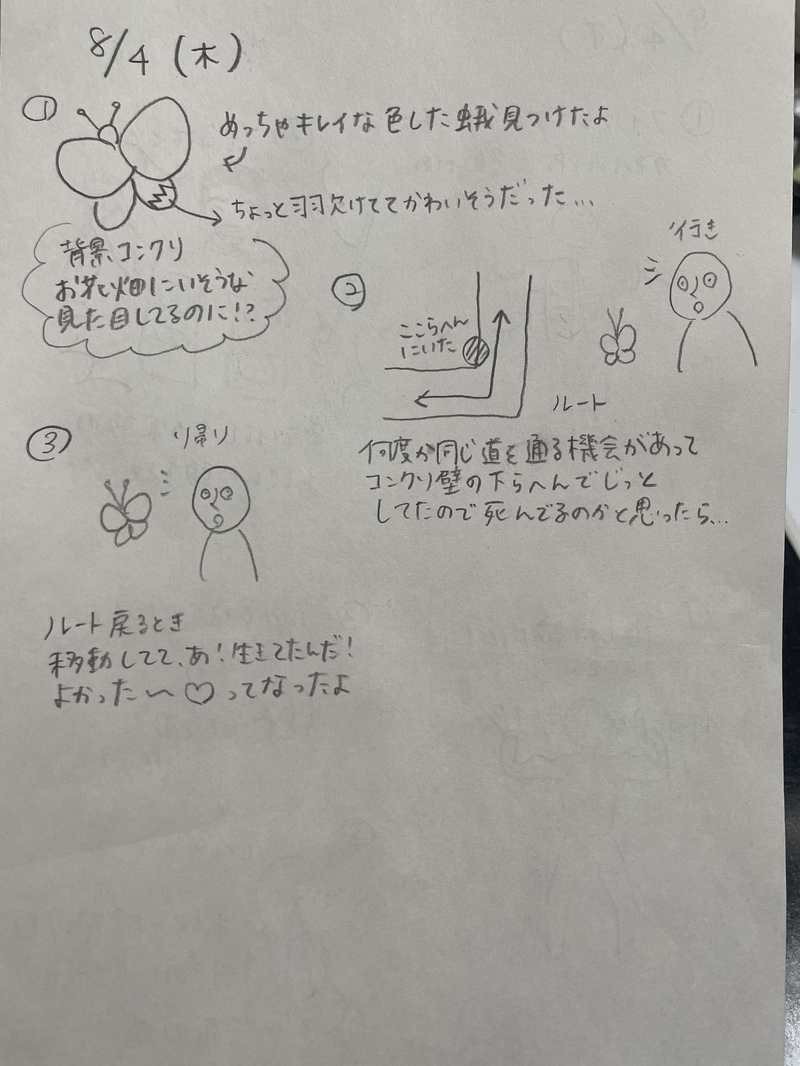 8/4(木)
①
めっちゃキレイな色した蛾見つけたよ
ちょっと羽欠けててかわいそうだった...
背景コンクリ
お花畑にいそうな
見た目してるのに!?
②
ここらへん
にいた
ルート
行き
何度か同じ道を通る機会があって
コンクリ壁の下らへんでじっと
してたので死んでるのかと思ったら...
③
帰り
ルート戻るとき
移動してて、あ!生きてたんだ!
よかった〜♡ってなったよ